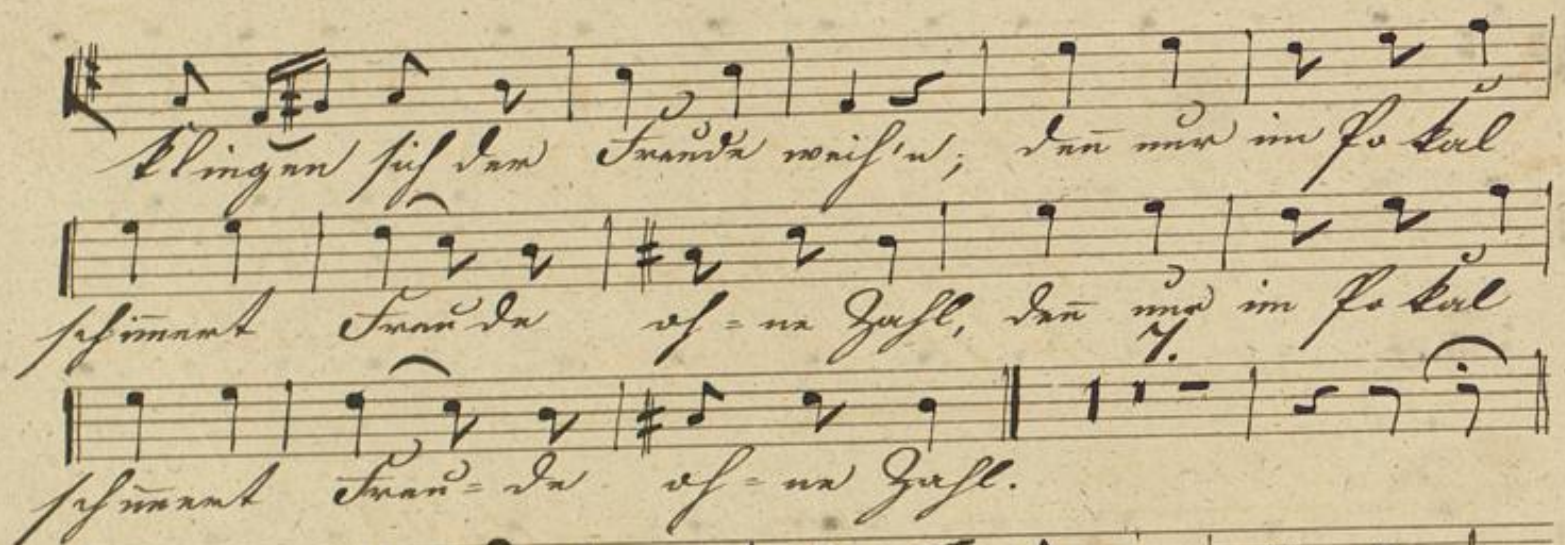 klingen sich der Freude weih'n; den̅ nur im Pokal
schim̅ert Freude oh=ne Zahl, den̅ nur im Pokal
7.
schim̅ert Freu=de oh=ne Zahl.